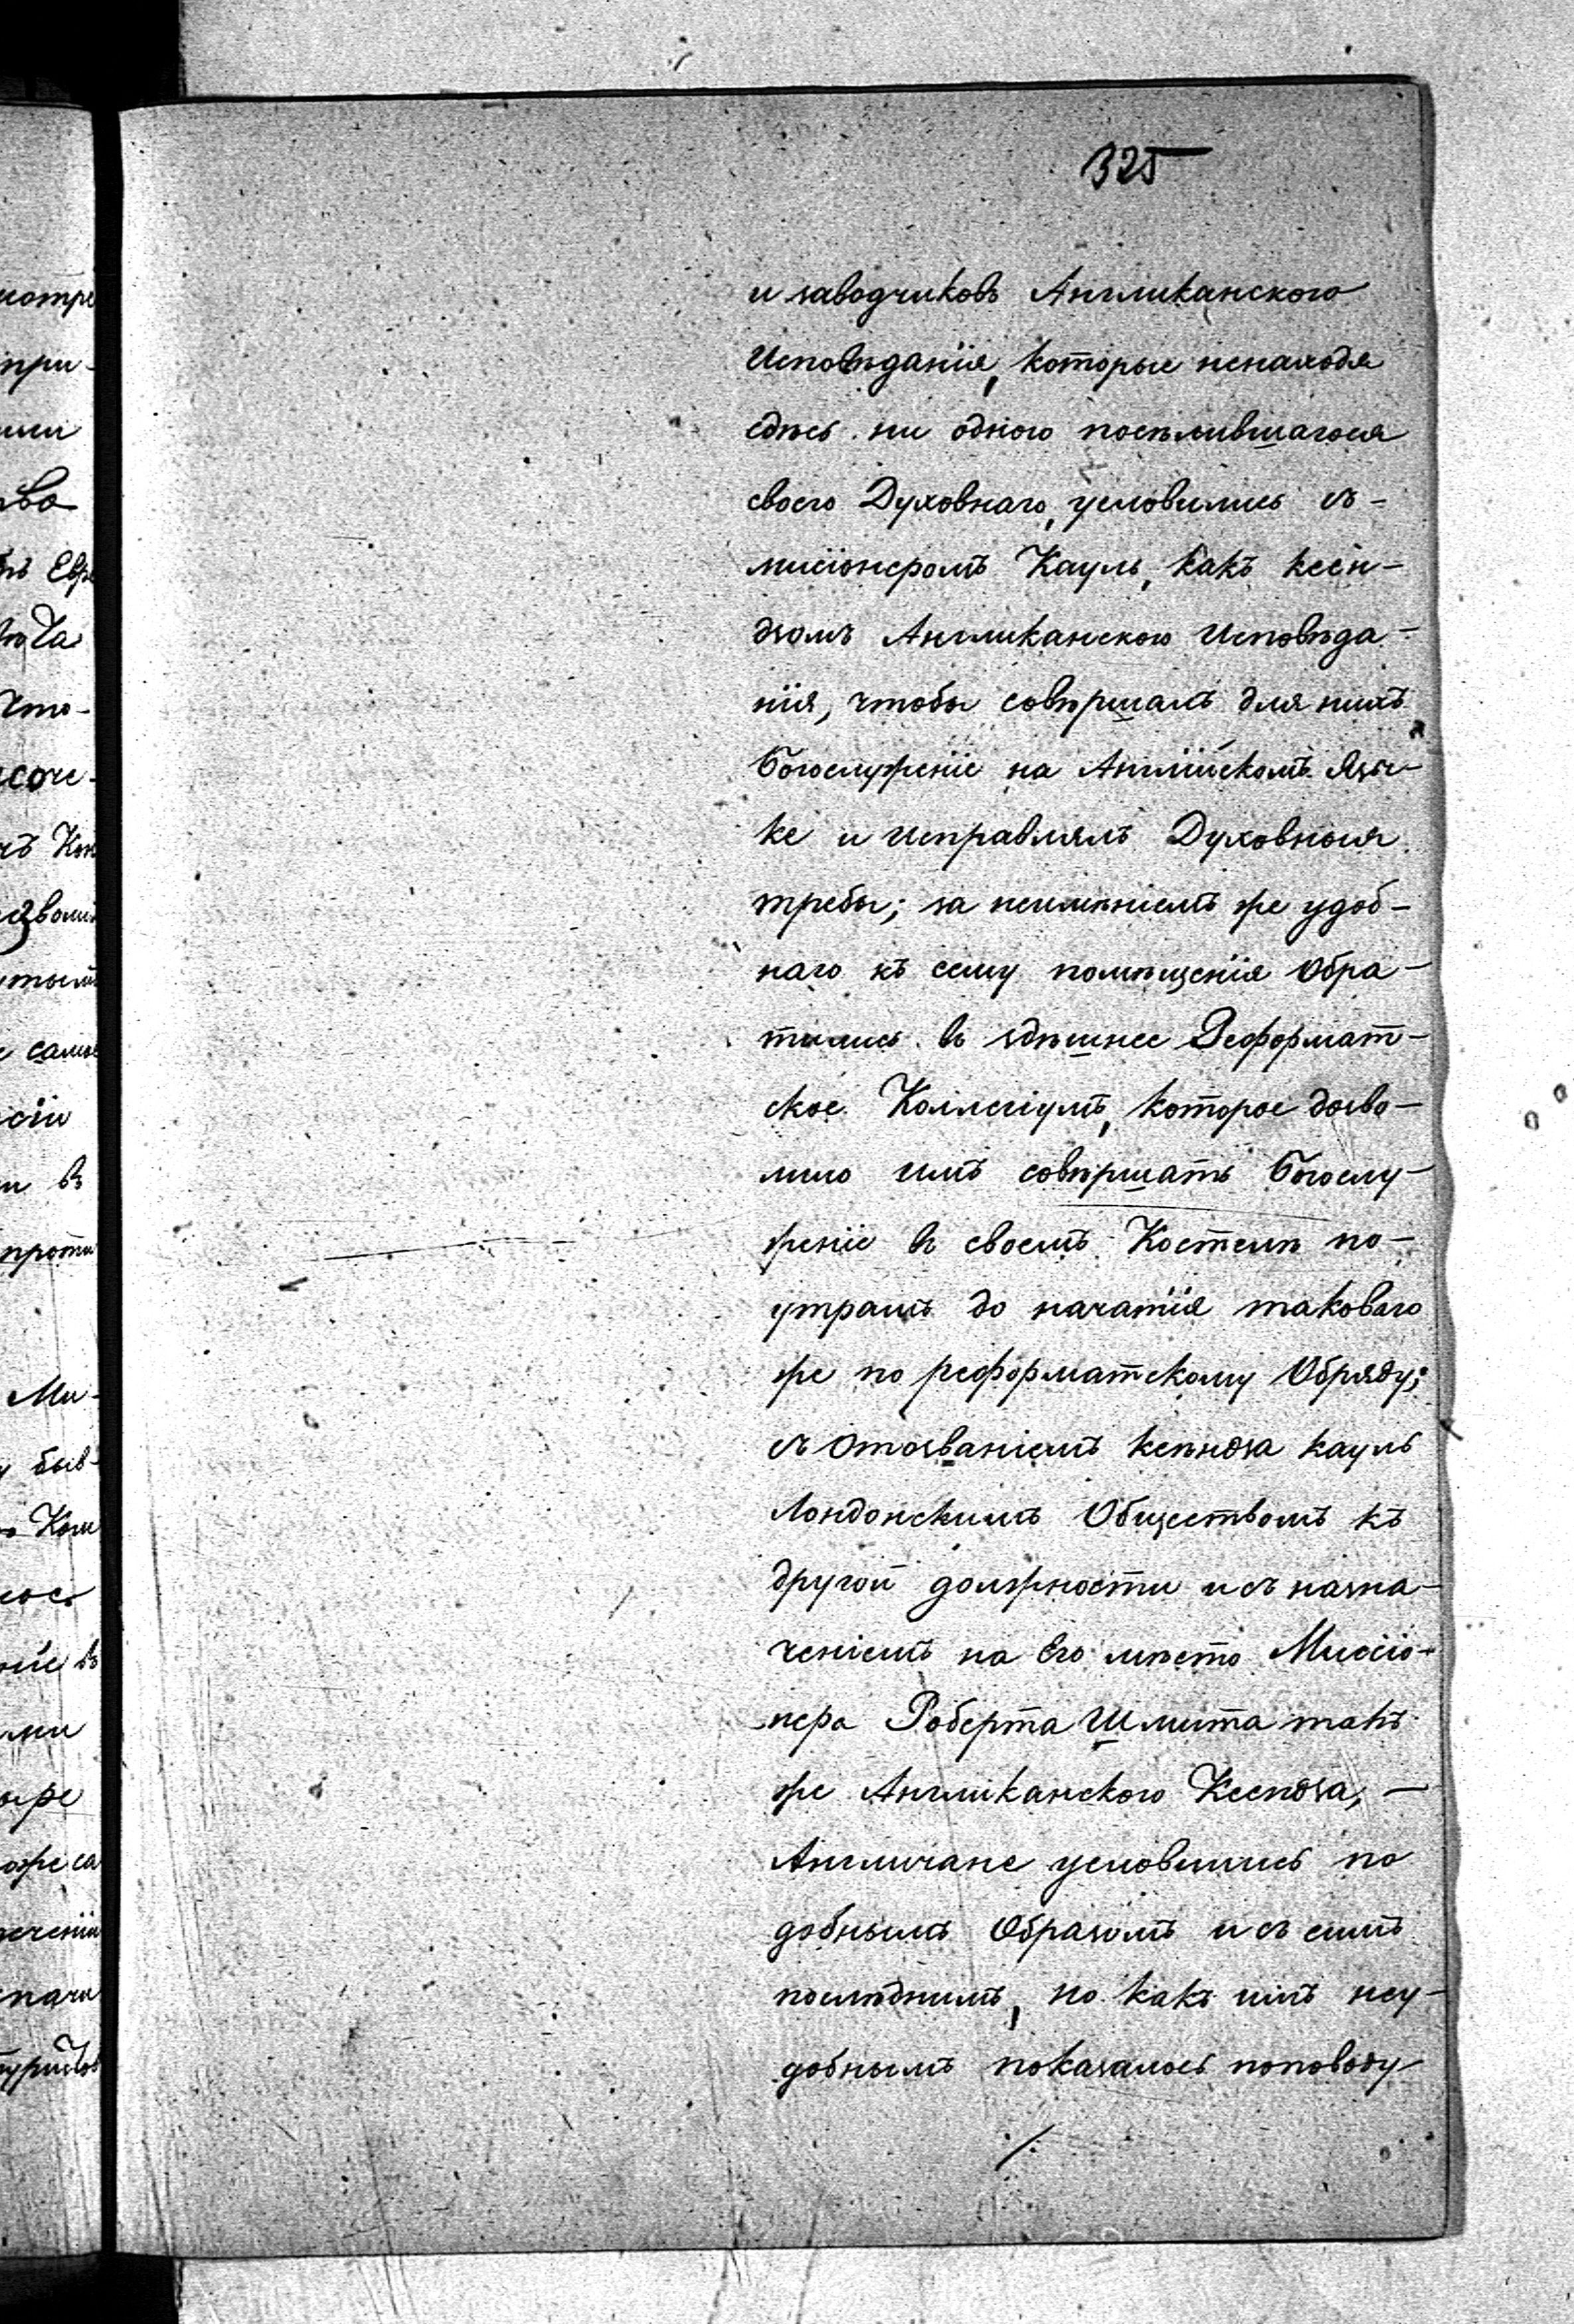 325
и заводчиковъ Англиканского
Исповѣданія, которые ненаходя
сдѣсь ни одного поселившагося
своего Духовнаго, условились съ-
мисіонеромъ Кауль, какъ ксен-
дзомъ Англиканского Исповѣда-
нія, чтобы совѣршалъ для нихъ
Богослуженіе на Англійскомъ Язы-
ке и исправлялъ Духовныя
требы; за неимѣніемъ же удоб-
наго къ сему помѣщенія Обра-
тились въ здѣшнее Реформат-
ское Коллегіумъ, которое дозво-
лило имъ совѣршать Богослу-
женіе въ своемъ Костелѣ по-
утрамъ до начатія таковаго
же по реформатскому Обряду;
съ Отозваніемъ ксѣндза кауль
Лондонскимъ Обществомъ къ
другой должности и съ назна-
ченіемъ на Его мѣсто Миссіо-
нера Роберта Шмита такъ
же Англиканского Ксендза, —
Англичане условились по
добнымъ Образомъ и съ симъ
послѣднимъ, но какъ имъ неу-
добнымъ показалось поповоду
./.